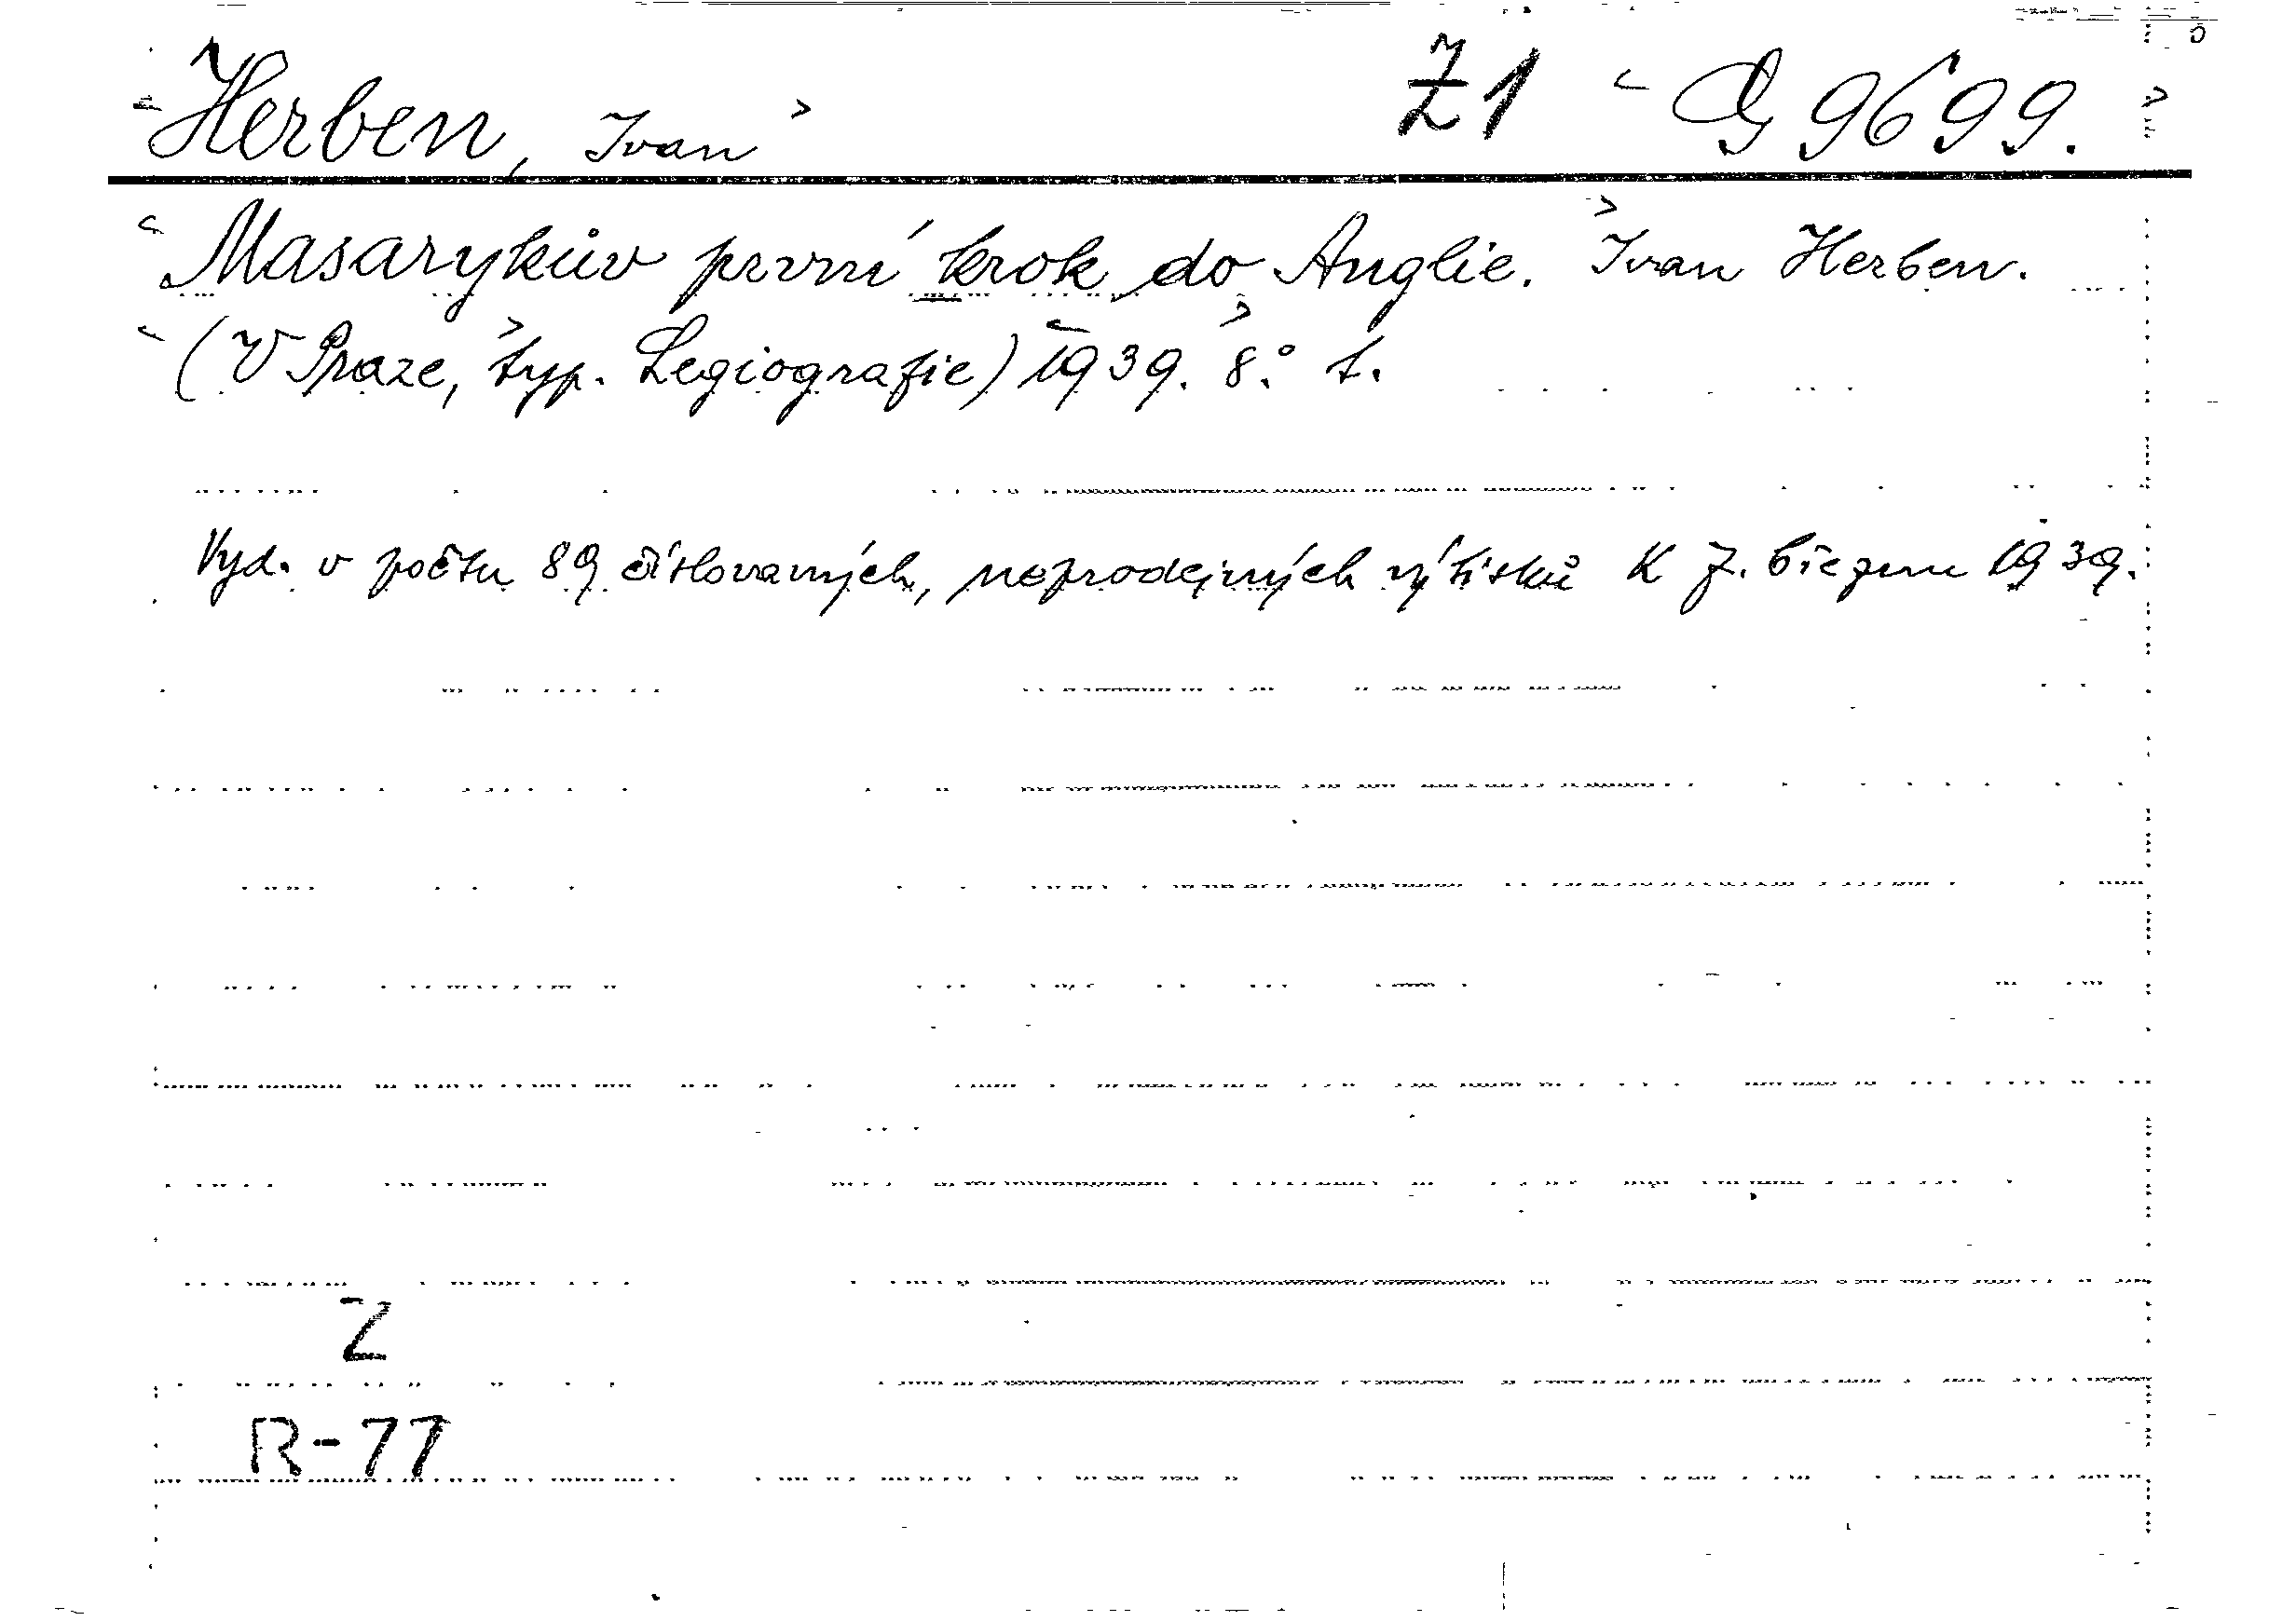 Herben, Ivan Z1 G 9699.
Masarykův první krok do Anglie. Ivan Herben.
(V Praze, typ. Legiografie) 1939. 8.° t.
Vyd. v počtu 89 číslovaných, neprodejných výtisků K 7. březnu 1939.
Z
R-77